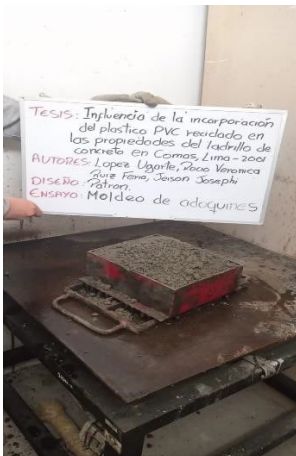 TESIS: Influencia de la incorporación
del plastico PVC reciclado en
las propiedades del ladrillo de
concreto en Comas, Lima - 2021
AUTORES: Lopez Ugarte, Rocio Veronica
Ruiz Feria, Jeison Josephi
DISEÑO: Patron.
ENSAYO: Moldeo de adoquines